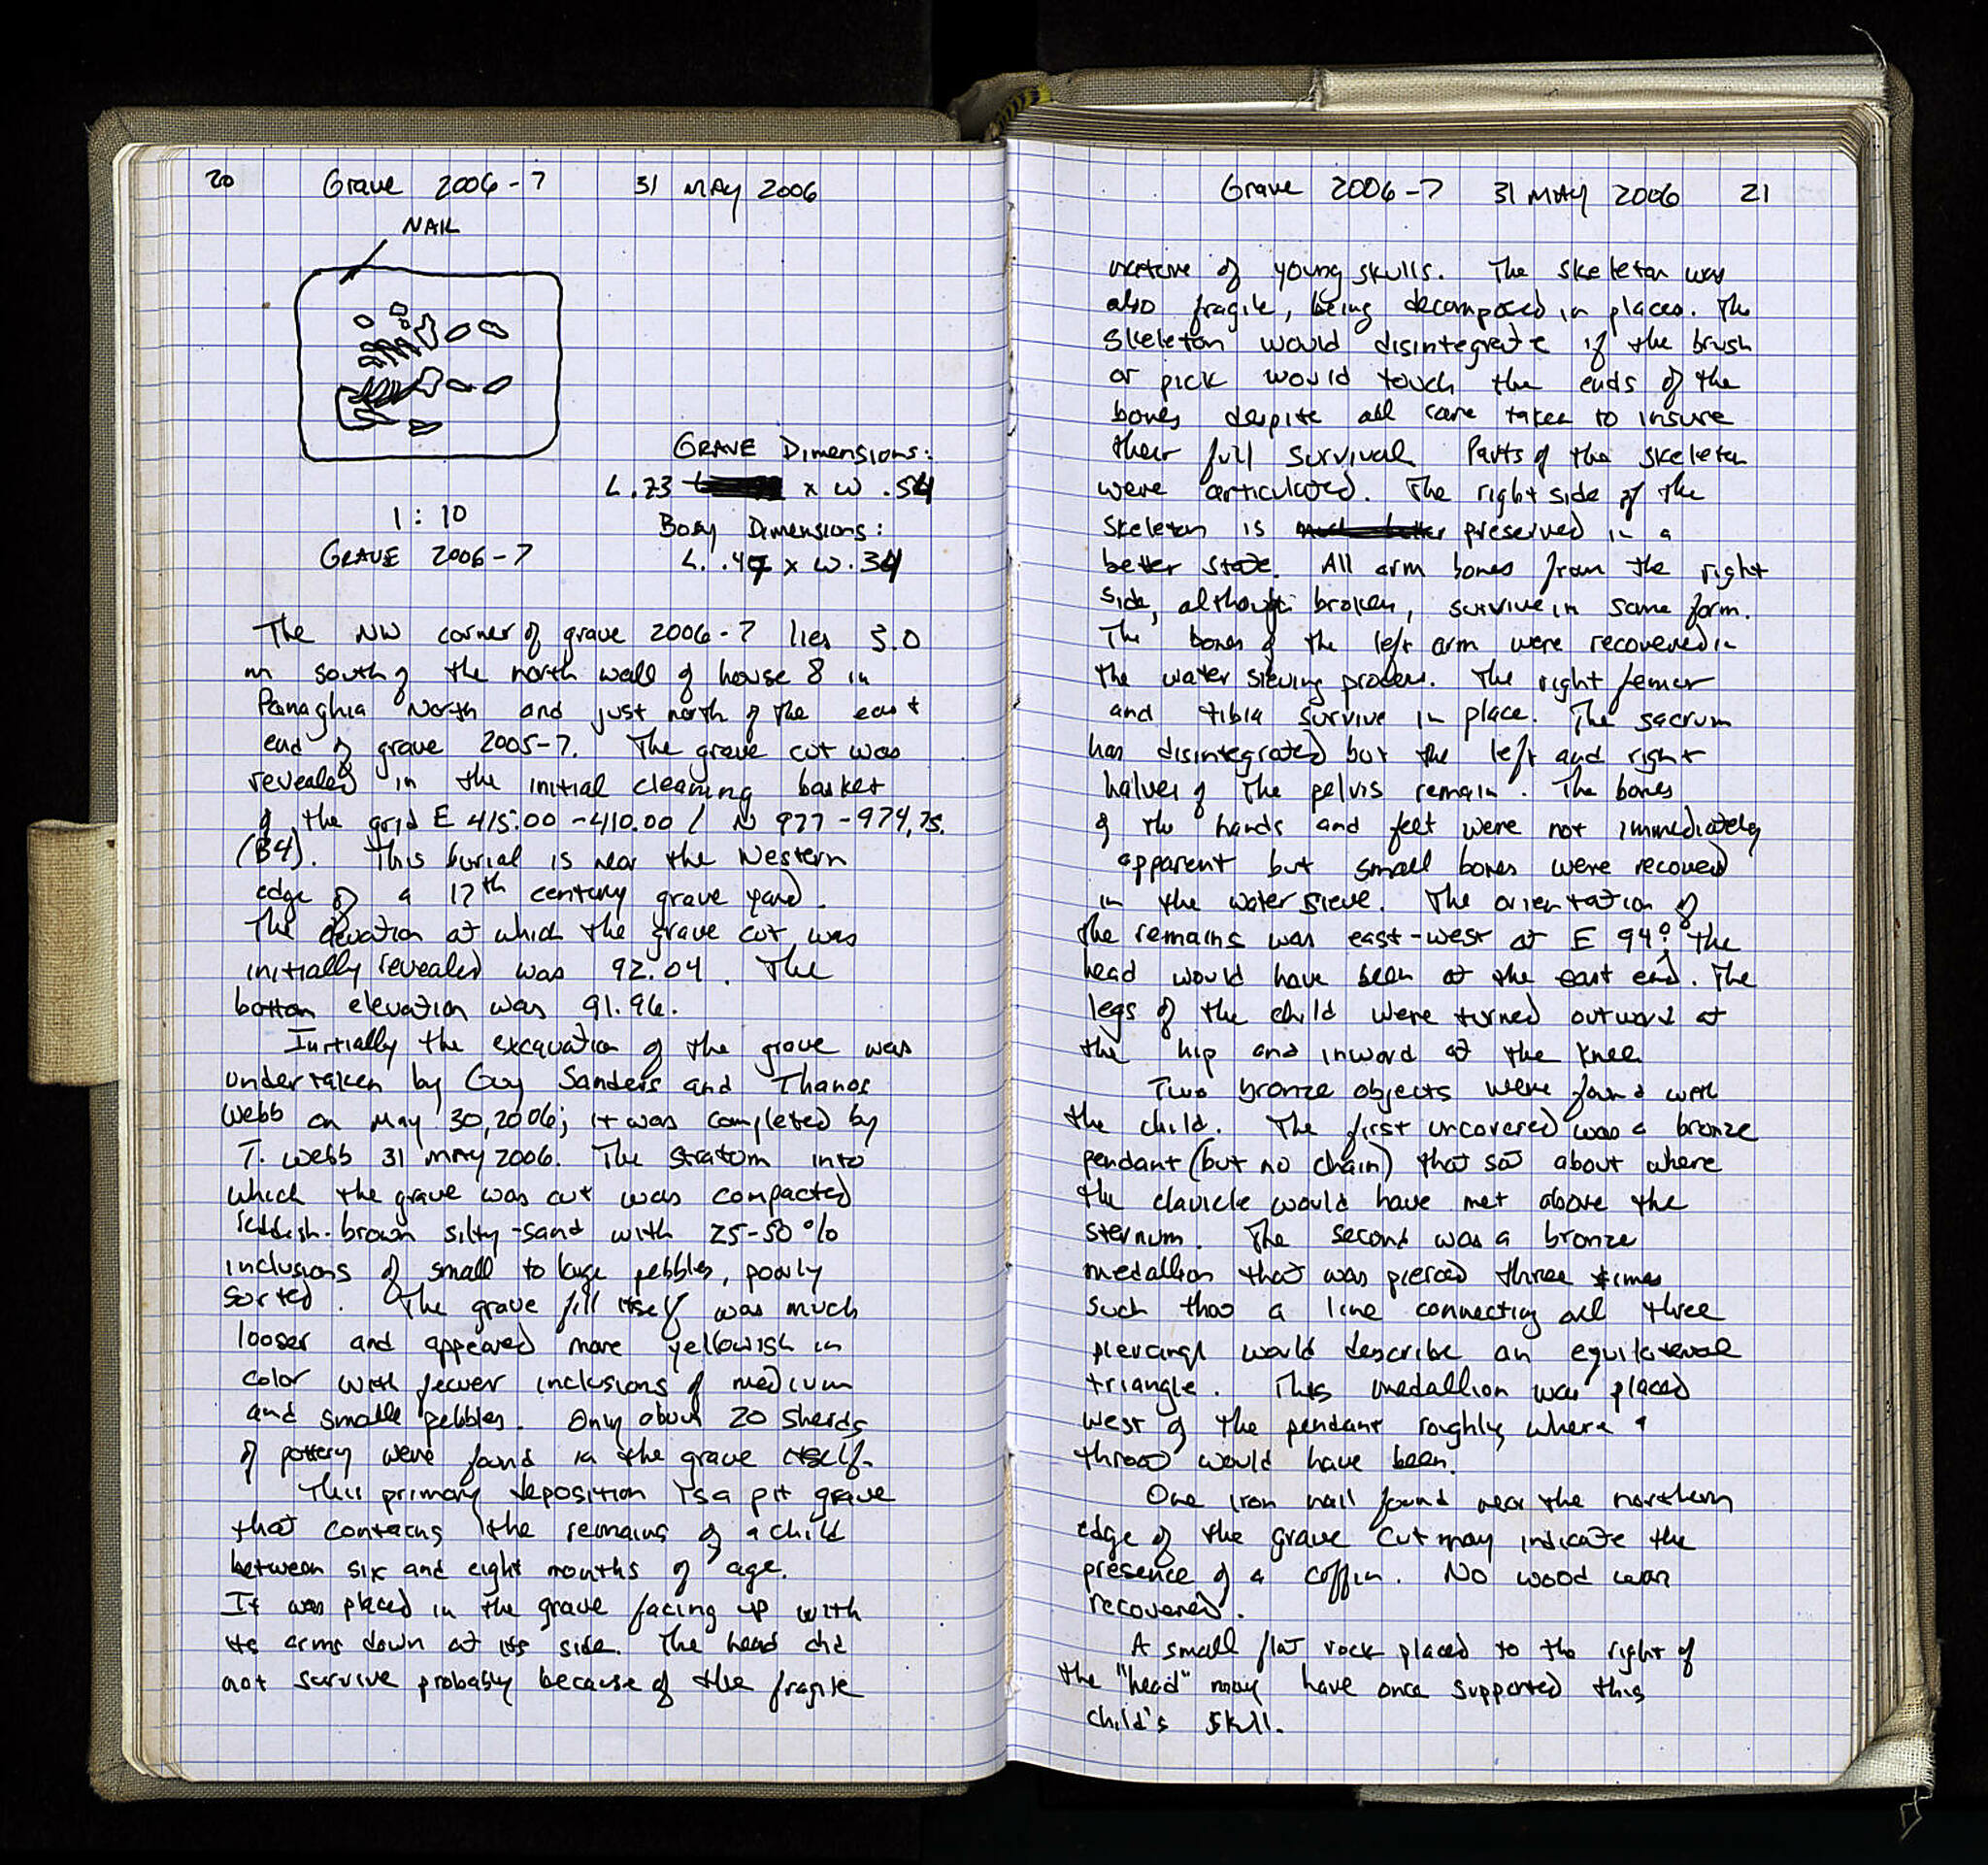 20 Grave 2006-7 31 MAY 2006
NAIL
GRAVE Dimensions:
L .73 x W .54
1:10
Body Dimensions:
GRAVE 2006-7
L. .47 x W .34
The NW corner of grave 2006-7 lies 3.0
m south of the north wall of house 8 in
Panaghia North and just north of the east
end of grave 2005-7. The grave cut was
revealed in the initial cleaning basket
of the grid E 415.00-410.00 / N 977-974,75.
(B4). This burial is near the Western
edge of a 17th century grave yard.
The elevation at which the grave cut was
initially revealed was 92.04. The
bottom elevation was 91.96.
Initially the excavation of the grave was
undertaken by Guy Sanders and Thanos
Webb on May 30, 2006; it was completed by
T. Webb 31 May 2006. The stratum into
which the grave was cut was compacted
reddish-brown silty-sand with 25-50%
inclusions of small to large pebbles, poorly
sorted. The grave fill itself was much
looser and appeared more yellowish in
color with fewer inclusions of medium
and smalle pebbles. Only about 20 sherds
of pottery were found in the grave itself.
This primary deposition is a pit grave
that contains the remains of a child
between six and eight months of age.
It was placed in the grave facing up with
its arms down at its side. The head did
not survive probably because of the fragile
Grave 2006-7 31 MAY 2006 21
nature of young skulls. The skeleton was
also fragile, being decomposed in places. The
skeleton would disintegrate if the brush
or pick would touch the ends of the
bones despite all care taken to insure
their full survival. Parts of the skeleton
were articulated. The right side of the
skeleton is preserved in a
better state. All arm bones from the right
side, although broken, survive in some form.
The bones of the left arm were recovered in
the water sieving process. The right femur
and tibia survive in place. The sacrum
has disintegrated but the left and right
halves of the pelvis remain. The bones
of the hands and feet were not immediately
apparent but small bones were recovered
in the water sieve. The orientation of
the remains was east-west at E 94°; the
head would have been at the east end. The
legs of the child were turned outward at
the hip and inward at the knee.
Two bronze objects were found with
the child. The first uncovered was a bronze
pendant (but no chain) that sat about where
the clavicle would have met above the
sternum. The second was a bronze
medallion that was pierced three times
such that a line connecting all three
piercings would describe an equilateral
triangle. This medallion was placed
west of the pendant roughly where a
throat would have been.
One iron nail found near the northern
edge of the grave cut may indicate the
presence of a coffin. No wood was
recovered.
A small flat rock placed to the right of
the "head" may have once supported this
child's skull.